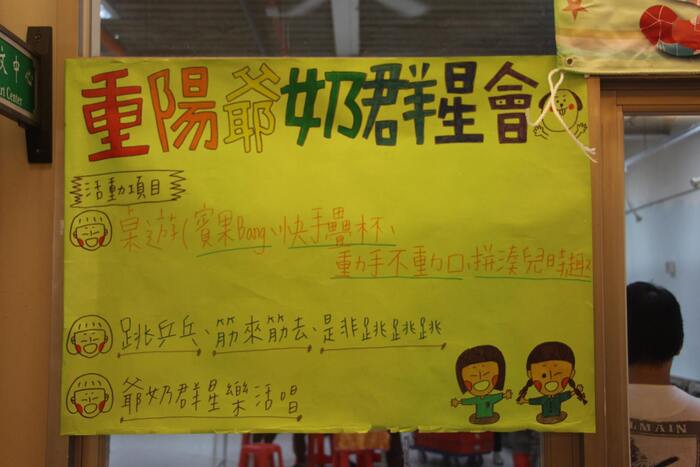 重陽爺奶群星會
活動項目
桌遊(賓果Bang、快手疊杯、
動手不動口、拼湊兒時趣
跳乒乓、筋來筋去、是非跳跳跳
爺奶群星樂活唱
中心
Center
LMAIN